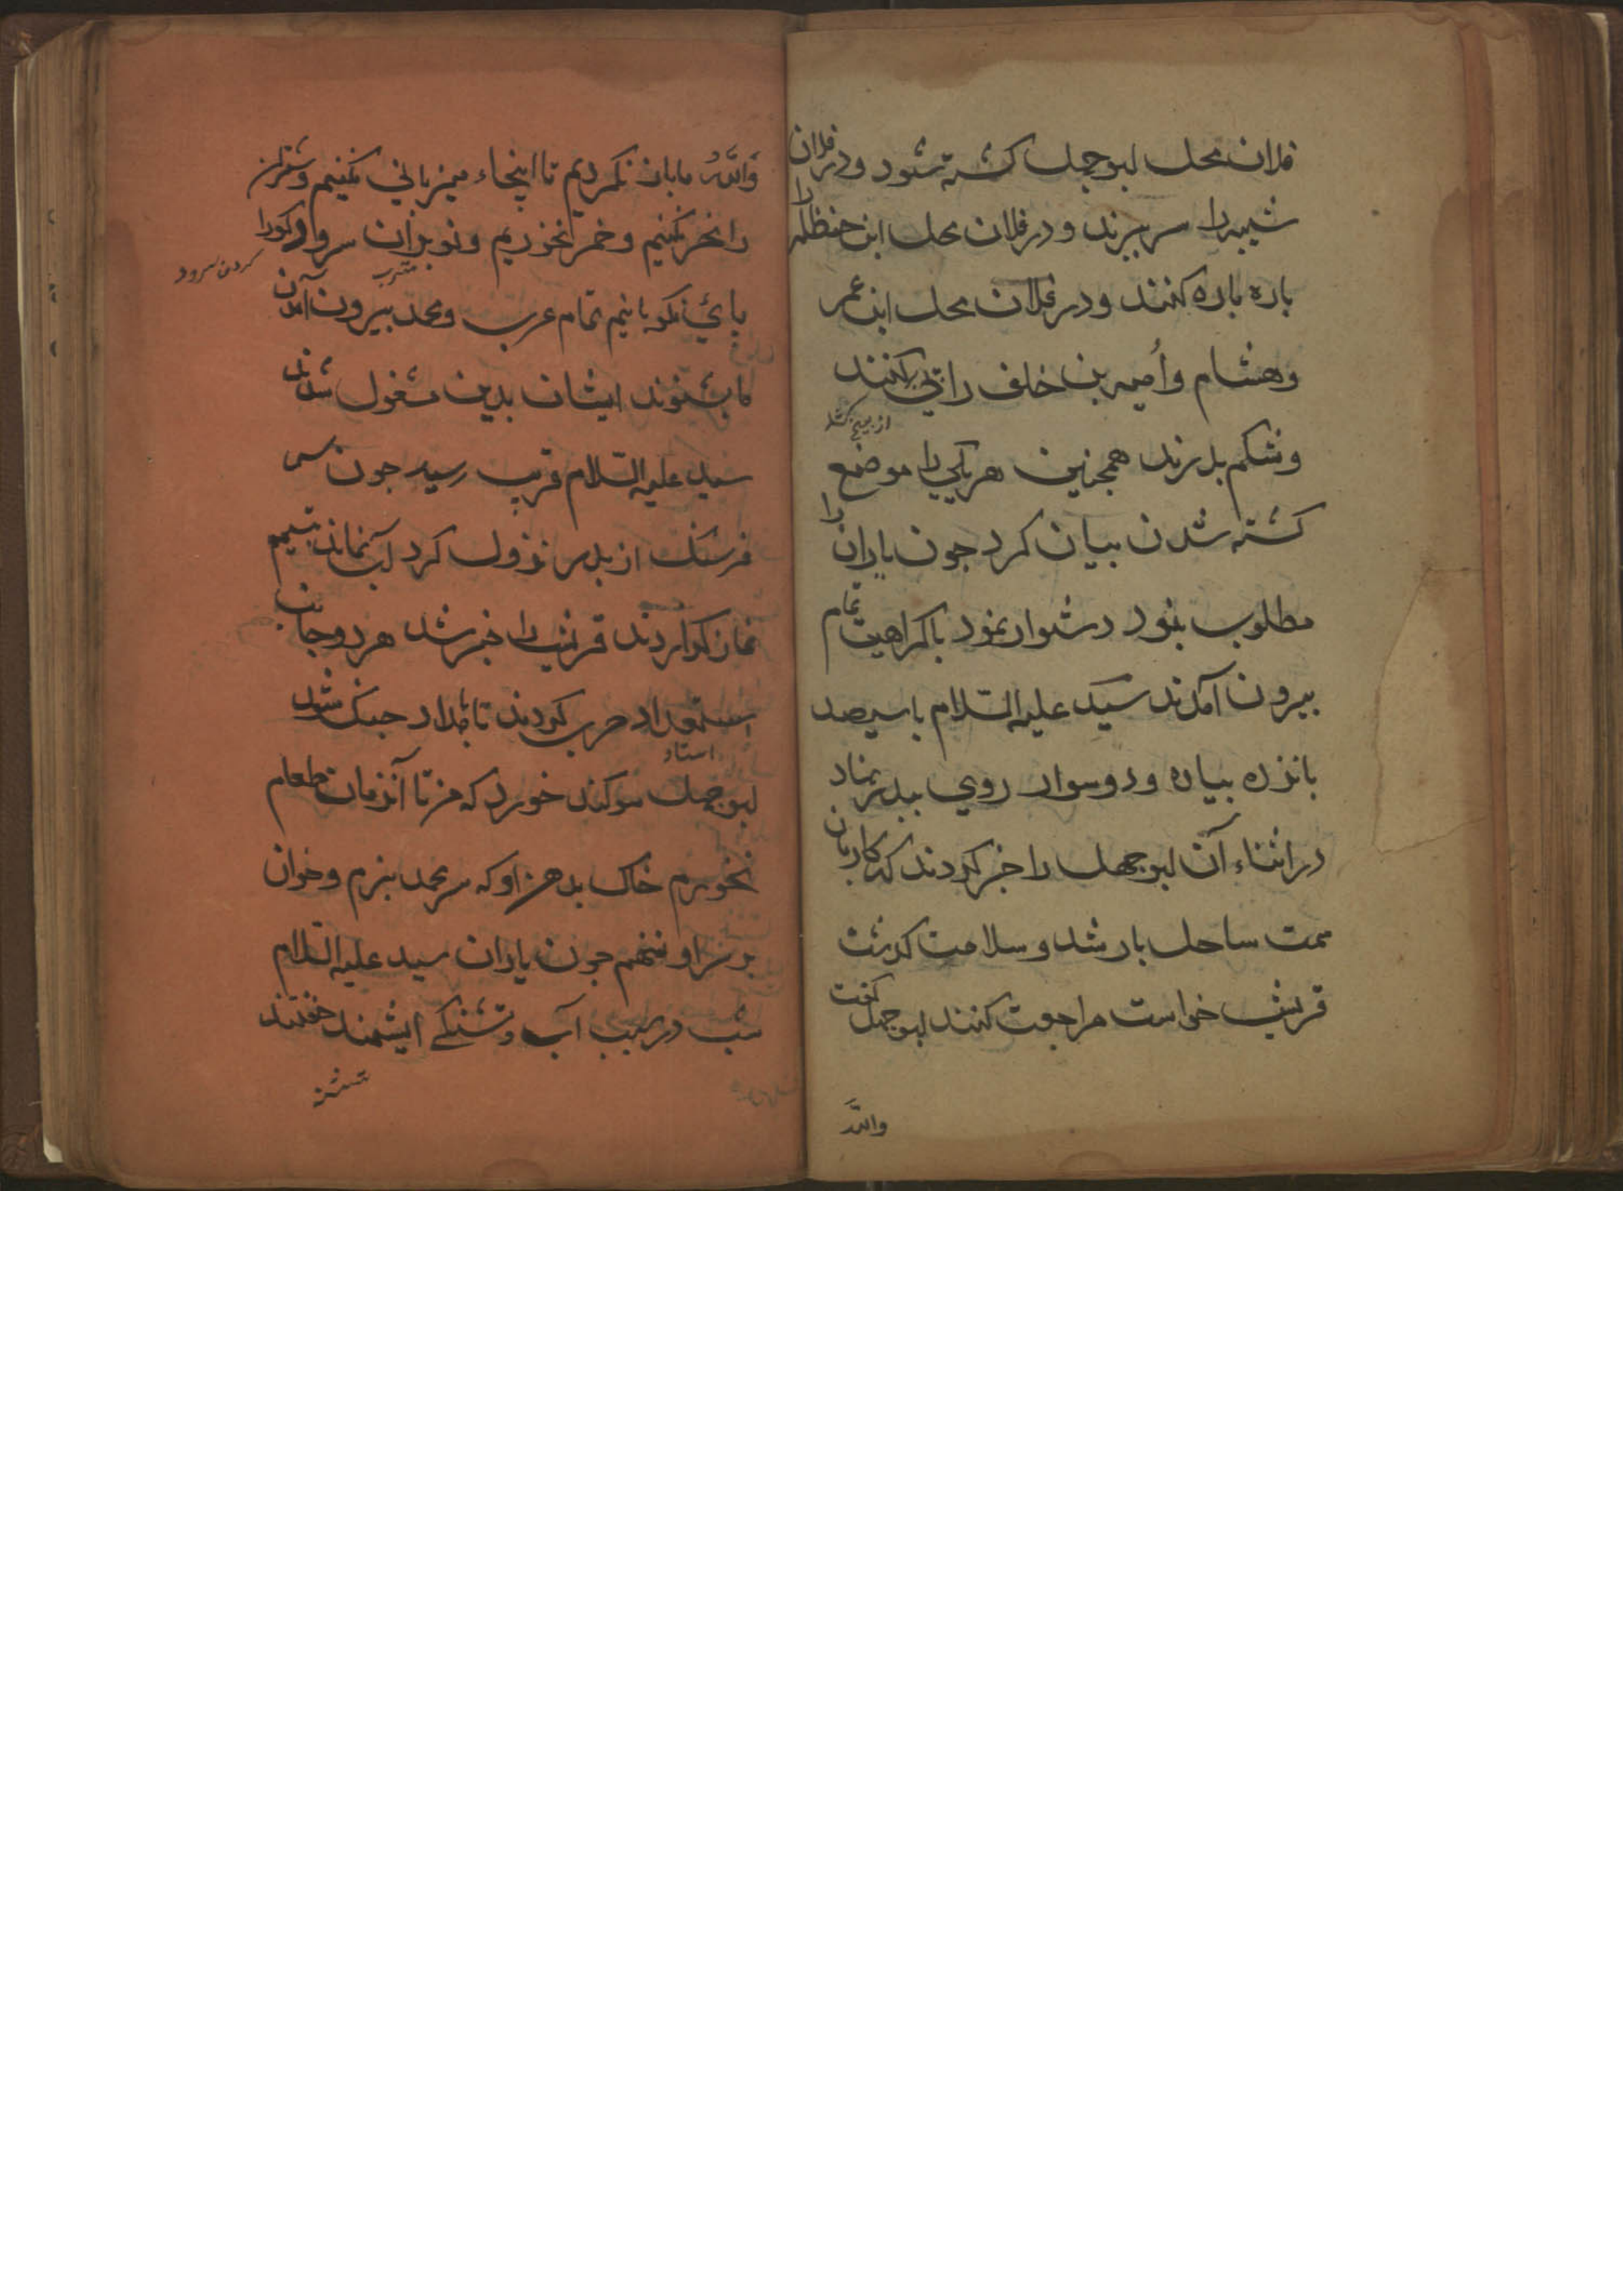 فلان محل ابوجهل كشته شود ودر فلان
شيبه را سر ببرند ودر فلان محل ابن حنظله را
باره باره كنند ودر فلان محل ابن عمر
وهشام واُميه بن خلف را بی بكنند
از بيخ
وشكم بدرند همجنين هر يكي را موضع
كشته شدن بيان كرد جون ياران را
مطلوب بنود دشوار نمود باكراهيت تمام
بيرون آمدند سيد عليه السّلام با سيصد
بانزده بياده ودو سوار روي ببدر نهاد
در اثناء آن ابوجهل را خبر كردند كه كاروان
سمت ساحل بار شد و سلامت كذشت
قريش خواست مراجعت كنند ابوجهل كفت
واللّه
واللّه ما باز نكرديم تا اينجاء ميزباني نكنيم وشتران
را نحر نكنيم وخمر نخوريم ونوبران سرواد
كردن سرود
شرب
باي نكوبانيم تمام عرب ومحمد بيرون آمدن
ما بشنوند ايشان بدين مشغول شدند
سيد عليه السّلام قريب رسيد جون
فرسنك از بدر نزول كرد آب نماند بتيمم
نماز كزاردند قريش را خبر شد هر دو جانب
استعداد حرب كردند تا بامداد جنك شود
ابوجهل سوكند خورد كه من تا آنزمان طعام
نخورم خاك بدهن او كه سر محمد ببرم وخوان
بر سر او ننهم جون ياران سيد عليه السّلام
شب در سبب آب وتشنكي خفتند